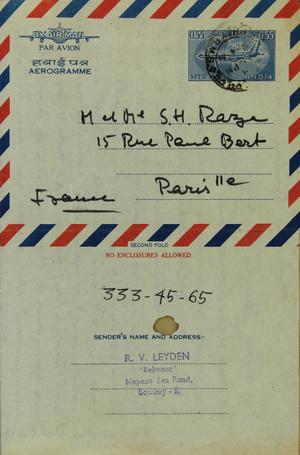 BY AIR MAIL
PAR AVION
हवाई पत्र
AEROGRAMME
0.55 0.55
INDIA
M et Me S.H. Raza
15 Rue Paul Bert
Paris 11e
France
SECOND FOLD
NO ENCLOSURES ALLOWED
333-45-65
SENDER'S NAME AND ADDRESS:-
R. V. LEYDEN
'Belmont'
Nepean Sea Road,
Bombay - 6.